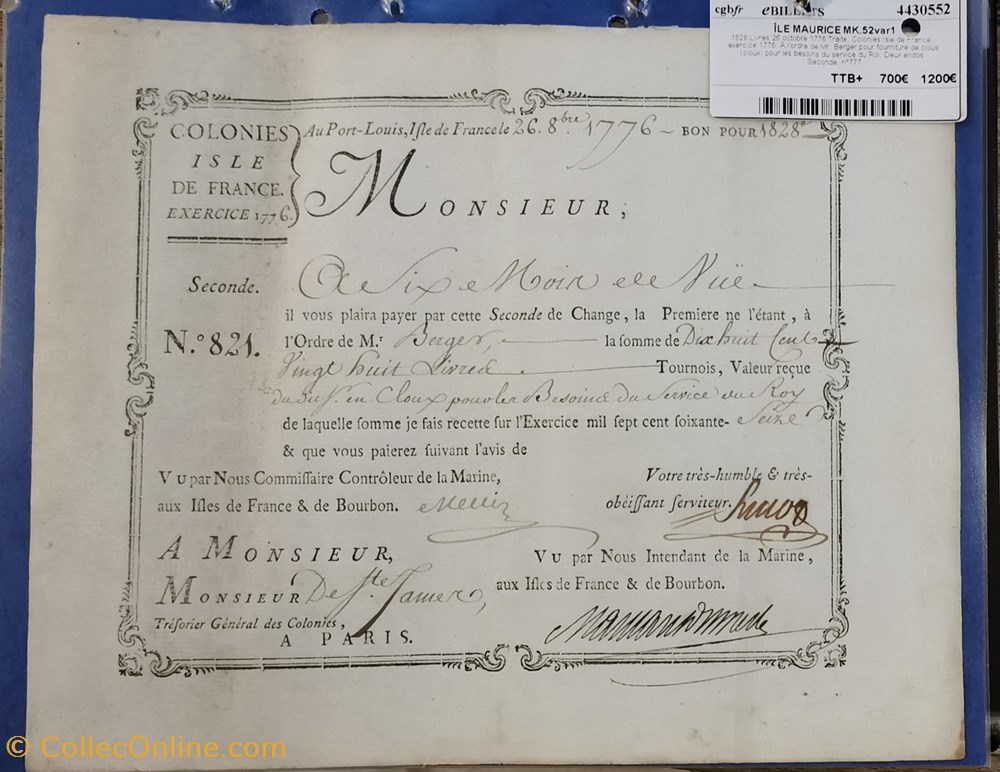 cgbfr eBILLETS 4430552
ÎLE MAURICE MK.52var1
1828 Livres 26 octobre 1776 Traite, Colonies Isle de France,
exercice 1776. A l'ordre de Mr. Berger pour fourniture de cloux
(cloux) pour les besoins du service du Roi. Deux endos.
Seconde. n°777
TTB+ 700€ 1200€
COLONIES
ISLE
DE FRANCE.
EXERCICE 1776.
Au Port-Louis, Isle de France le 26. 8.bre 1776 — BON POUR 1828
MONSIEUR,
Seconde.
A Six Mois de Vuë
il vous plaira payer par cette Seconde de Change, la Premiere ne l'étant, à
N.º 821.
l'Ordre de M.r Berger, la somme de Dix huit Cent
Vingt huit Livres Tournois, Valeur reçue
en Cloux pour les Besoins du Service du Roy
de laquelle somme je fais recette sur l'Exercice mil sept cent soixante- Seize
& que vous paierez suivant l'avis de
VU par Nous Commissaire Contrôleur de la Marine,
aux Isles de France & de Bourbon.
Votre très-humble & très-
obéissant serviteur.
A MONSIEUR,
MONSIEUR De Ste. James,
Trésorier Général des Colonies,
A PARIS.
VU par Nous Intendant de la Marine,
aux Isles de France & de Bourbon.
© CollecOnline.com